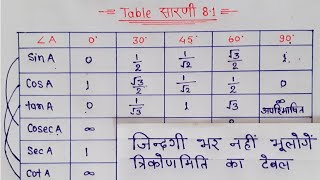 Table सारणी 8.1
∠A 0° 30° 45° 60° 90°
Sin A 0 1/2 1/√2 √3/2 1
Cos A 1 √3/2 1/√2 1/2 0
tan A 0 1/√3 1 √3 अपरिभाषित
Cosec A ∞
Sec A 1
Cot A ∞
जिन्दगी भर नहीं भूलोगें
त्रिकोणमिति का टेबल